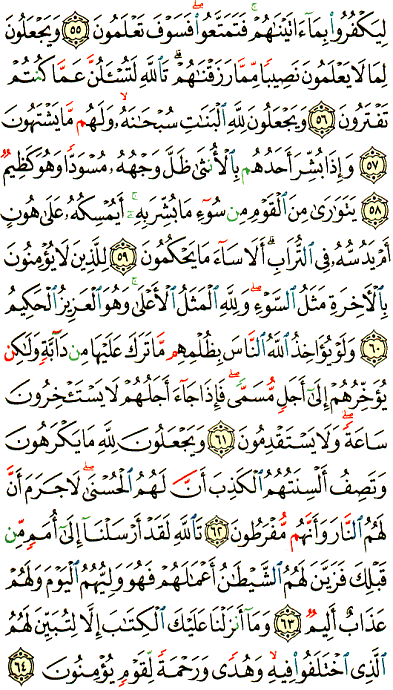 لِيَكْفُرُوا۟ بِمَآ ءَاتَيْنَٰهُمْ ۚ فَتَمَتَّعُوا۟ ۖ فَسَوْفَ تَعْلَمُونَ ٥٥ وَيَجْعَلُونَ
لِمَا لَا يَعْلَمُونَ نَصِيبًا مِّمَّا رَزَقْنَٰهُمْ ۗ تَٱللَّهِ لَتُسْـَٔلُنَّ عَمَّا كُنتُمْ
تَفْتَرُونَ ٥٦ وَيَجْعَلُونَ لِلَّهِ ٱلْبَنَٰتِ سُبْحَٰنَهُۥ ۙ وَلَهُم مَّا يَشْتَهُونَ
٥٧ وَإِذَا بُشِّرَ أَحَدُهُم بِٱلْأُنثَىٰ ظَلَّ وَجْهُهُۥ مُسْوَدًّا وَهُوَ كَظِيمٌ
٥٨ يَتَوَٰرَىٰ مِنَ ٱلْقَوْمِ مِن سُوٓءِ مَا بُشِّرَ بِهِۦٓ ۚ أَيُمْسِكُهُۥ عَلَىٰ هُونٍ
أَمْ يَدُسُّهُۥ فِى ٱلتُّرَابِ ۗ أَلَا سَآءَ مَا يَحْكُمُونَ ٥٩ لِلَّذِينَ لَا يُؤْمِنُونَ
بِٱلْءَاخِرَةِ مَثَلُ ٱلسَّوْءِ ۖ وَلِلَّهِ ٱلْمَثَلُ ٱلْأَعْلَىٰ ۚ وَهُوَ ٱلْعَزِيزُ ٱلْحَكِيمُ
٦٠ وَلَوْ يُؤَاخِذُ ٱللَّهُ ٱلنَّاسَ بِظُلْمِهِم مَّا تَرَكَ عَلَيْهَا مِن دَآبَّةٍ وَلَٰكِن
يُؤَخِّرُهُمْ إِلَىٰٓ أَجَلٍ مُّسَمًّى ۖ فَإِذَا جَآءَ أَجَلُهُمْ لَا يَسْتَـْٔخِرُونَ
سَاعَةً ۖ وَلَا يَسْتَقْدِمُونَ ٦١ وَيَجْعَلُونَ لِلَّهِ مَا يَكْرَهُونَ
وَتَصِفُ أَلْسِنَتُهُمُ ٱلْكَذِبَ أَنَّ لَهُمُ ٱلْحُسْنَىٰ ۖ لَا جَرَمَ أَنَّ
لَهُمُ ٱلنَّارَ وَأَنَّهُم مُّفْرَطُونَ ٦٢ تَٱللَّهِ لَقَدْ أَرْسَلْنَآ إِلَىٰٓ أُمَمٍ مِّن
قَبْلِكَ فَزَيَّنَ لَهُمُ ٱلشَّيْطَٰنُ أَعْمَٰلَهُمْ فَهُوَ وَلِيُّهُمُ ٱلْيَوْمَ وَلَهُمْ
عَذَابٌ أَلِيمٌ ٦٣ وَمَآ أَنزَلْنَا عَلَيْكَ ٱلْكِتَٰبَ إِلَّا لِتُبَيِّنَ لَهُمُ
ٱلَّذِى ٱخْتَلَفُوا۟ فِيهِ ۙ وَهُدًى وَرَحْمَةً لِّقَوْمٍ يُؤْمِنُونَ ٦٤